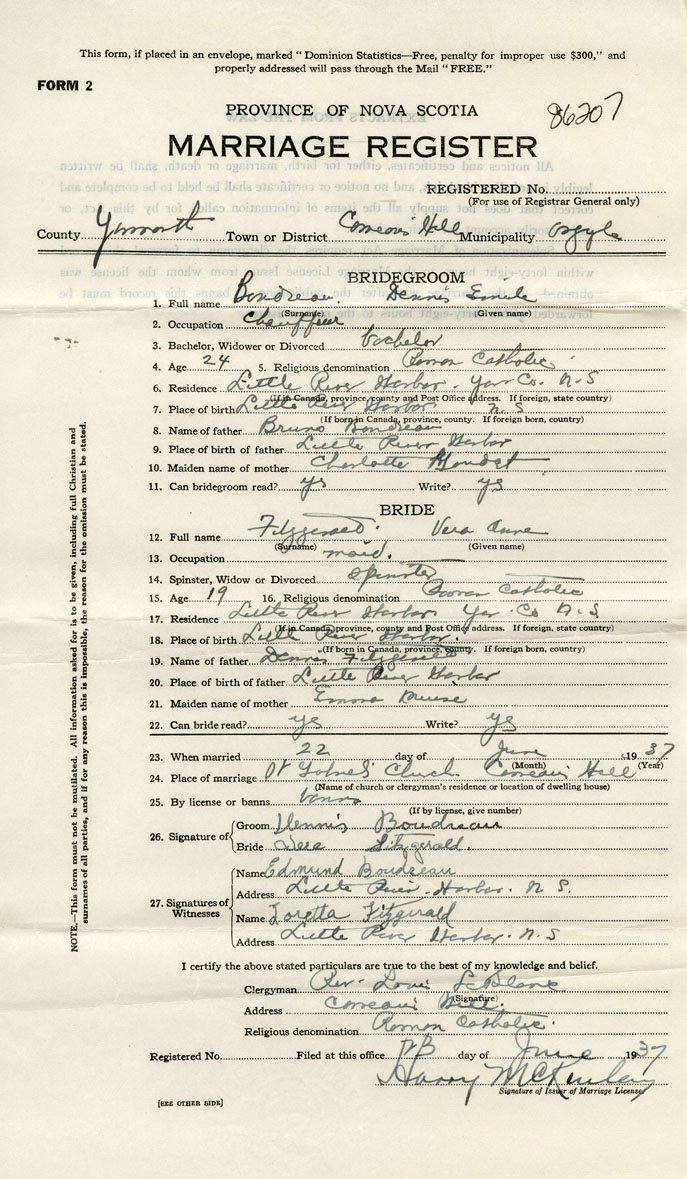 This form, if placed in an envelope, marked "Dominion Statistics—Free, penalty for improper use $300," and
properly addressed will pass through the Mail "FREE."
FORM 2
PROVINCE OF NOVA SCOTIA
86207
MARRIAGE REGISTER
REGISTERED No.
(For use of Registrar General only)
County Yarmouth Town or District Comeau's Hill Municipality Argyle
BRIDEGROOM
1. Full name Boudreau Dennis Emile
(Surname) (Given name)
2. Occupation Chauffeur
3. Bachelor, Widower or Divorced bachelor
4. Age 24 5. Religious denomination Roman Catholic
6. Residence Little River Harbor. Yar Co. N.S
(If in Canada, province, county and Post Office address. If foreign, state country)
7. Place of birth Little River Harbor N.S
(If born in Canada, province, county. If foreign born, country)
8. Name of father Bruno Boudreau
9. Place of birth of father Little River Harbor
10. Maiden name of mother Charlotte
11. Can bridegroom read? yes Write? yes
BRIDE
12. Full name Fitzgerald. Vera Anne
(Surname) (Given name)
13. Occupation maid.
14. Spinster, Widow or Divorced Spinster
15. Age 19 16. Religious denomination Roman Catholic
17. Residence Little River Harbor Yar. Co N.S
(If in Canada, province, county and Post Office address. If foreign, state country)
18. Place of birth Little River Harbor.
(If born in Canada, province, county. If foreign born, country)
19. Name of father Dennis Fitzgerald
20. Place of birth of father Little River Harbor
21. Maiden name of mother Emma
22. Can bride read? yes Write? yes
23. When married 22 day of June 1937
(Month) (Year)
24. Place of marriage Church. Comeau's Hill
(Name of church or clergyman's residence or location of dwelling house)
25. By license or banns banns
(If by license, give number)
26. Signature of Groom Dennis Boudreau
Bride Vera Fitzgerald.
27. Signatures of Witnesses
Name Edmund Boudreau
Address Little River Harbor. N.S.
Name Loretta Fitzgerald
Address Little River Harbor. N.S
I certify the above stated particulars are true to the best of my knowledge and belief.
Clergyman Rev. Louis LeBlanc
(Signature)
Address Comeau's Hill.
Religious denomination Roman Catholic.
Registered No. Filed at this office day of June 1937
Harry McKinley
Signature of Issuer of Marriage License
[SEE OTHER SIDE]
NOTE.—This form must not be mutilated. All information asked for is to be given, including full Christian and
surnames of all parties, and if for any reason this is impossible, the reason for the omission must be stated.